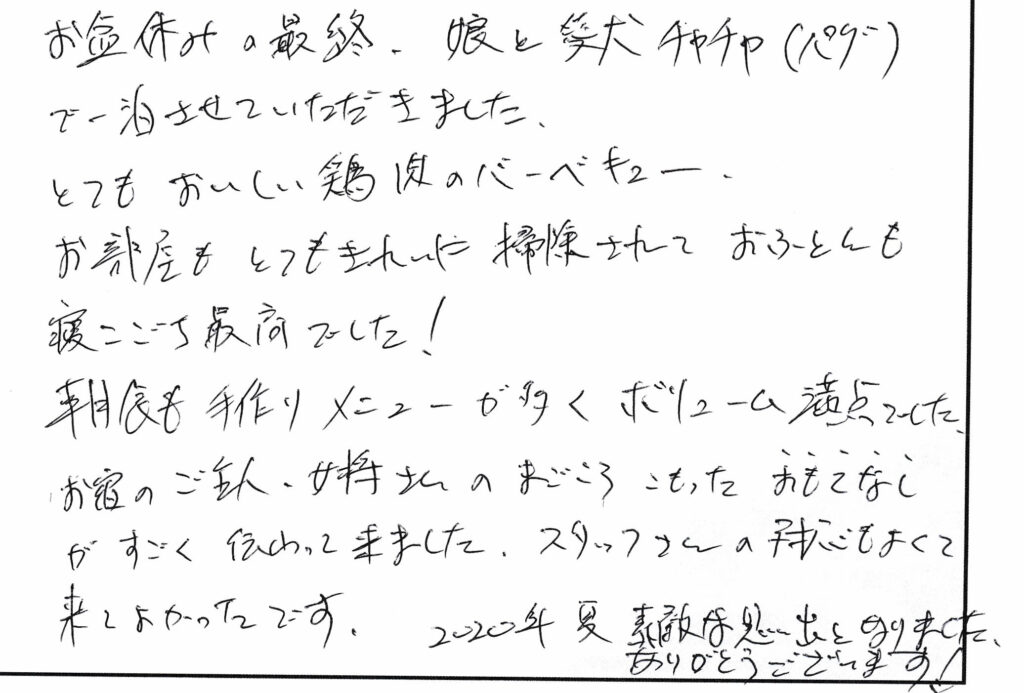 お盆休みの最終、娘と愛犬チャチャ(パグ)
で一泊させていただきました、
とてもおいしい鶏肉のバーベキュー、
お部屋もとてもきれいに掃除されておふとんも
寝ごこち最高でした!
朝食も手作りメニューが多くボリューム満点でした、
お宿のご主人・女将さんのまごころこもったおもてなし
がすごく伝わって来ました、スタッフさんの対応もよくて
来てよかったです、
2020年夏素敵な思い出となりました、
ありがとうございます!